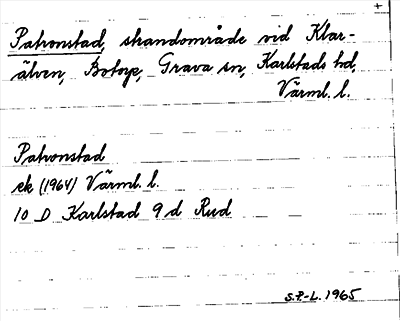 +
Patronstad, strandområde vid Klar-
älven, Botorp, Grava sn, Karlstads hd,
Värml. l.
Patronstad
ek (1964) Värml. l.
10 D Karlstad 9 d Rud
S.P.-L. 1965